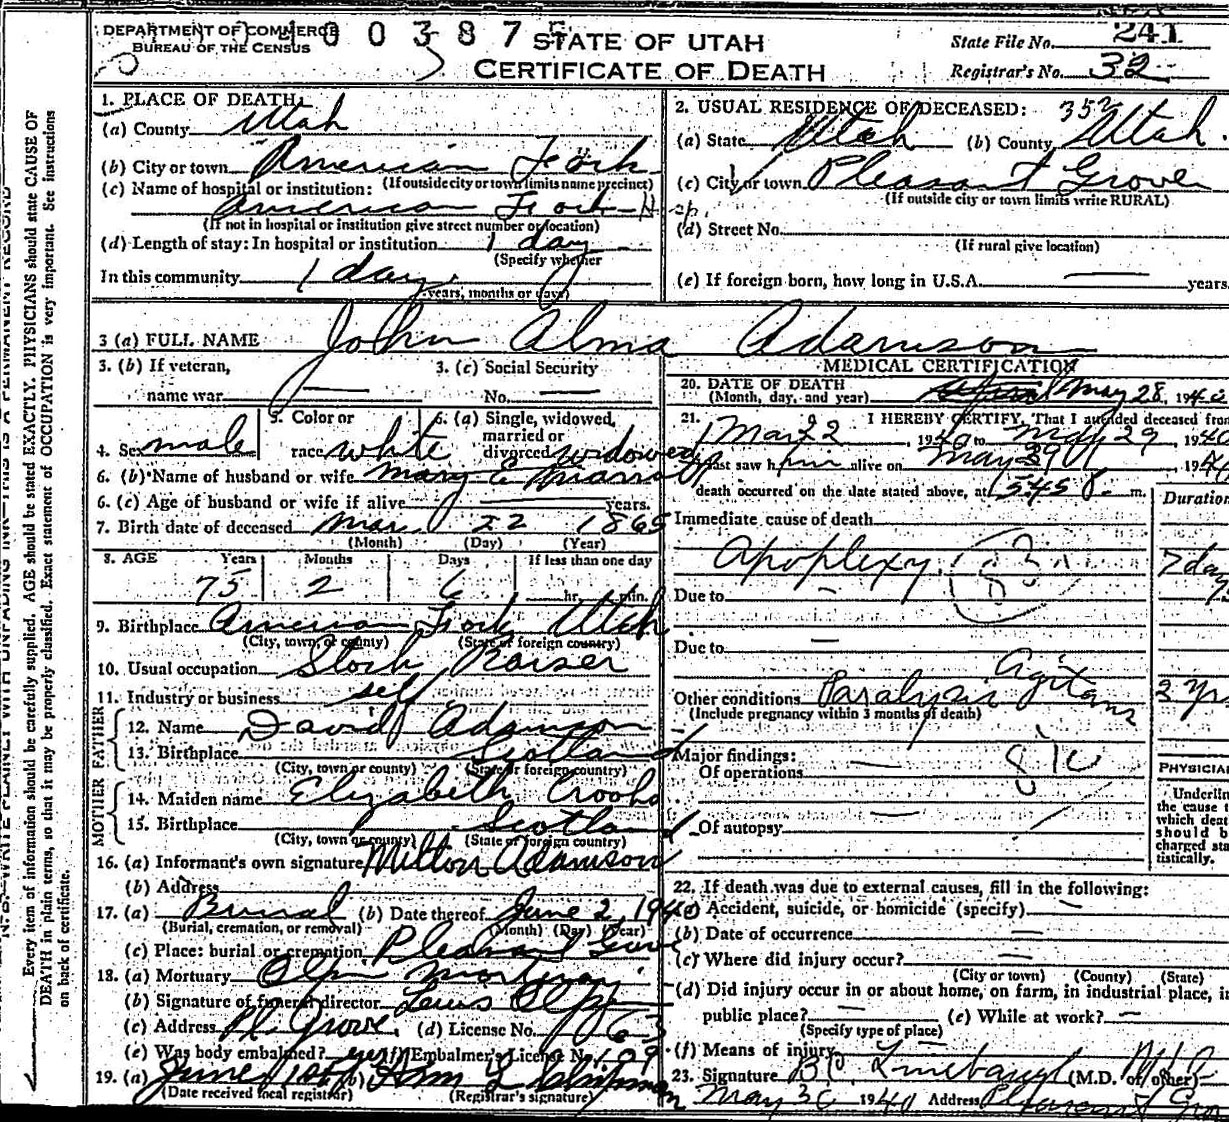 DEPARTMENT OF COMMERCE
BUREAU OF THE CENSUS
0 0 3 8 7
STATE OF UTAH
CERTIFICATE OF DEATH
State File No. 241
Registrar's No. 32
1. PLACE OF DEATH:
(a) County Utah
(b) City or town American Fork
(If outside city or town limits name precinct)
(c) Name of hospital or institution:
American Fork Hsp.
(If not in hospital or institution give street number or location)
(d) Length of stay: In hospital or institution 1 day
(Specify whether
In this community 1 day
years, months or days)
2. USUAL RESIDENCE OF DECEASED:
(a) State Utah (b) County Utah
(c) City or town Pleasant Grove
(If outside city or town limits write RURAL)
(d) Street No.
(If rural give location)
(e) If foreign born, how long in U.S.A. — years.
3 (a) FULL NAME John Alma Adamson
3. (b) If veteran,
name war —
3. (c) Social Security
No. —
4. Sex male
5. Color or
race white
6. (a) Single, widowed,
married or
divorced widowed
6. (b) Name of husband or wife Mary E Marrott
6. (c) Age of husband or wife if alive years.
7. Birth date of deceased Mar. 22 1865
(Month) (Day) (Year)
8. AGE Years Months Days If less than one day
75 2 6 hr. min.
9. Birthplace American Fork Utah
(City, town, or county) (State or foreign country)
10. Usual occupation Stock Raiser
11. Industry or business self
FATHER
12. Name David Adamson
13. Birthplace Scotland
(City, town or county) (State or foreign country)
MOTHER
14. Maiden name Elizabeth Crooks
15. Birthplace Scotland
(City, town or county) (State or foreign country)
16. (a) Informant's own signature Milton Adamson
(b) Address
17. (a) Burial (b) Date thereof June 2, 1940
(Burial, cremation, or removal) (Month) (Day) (Year)
(c) Place: burial or cremation Pleasant Grove
18. (a) Mortuary Olpin Mortuary
(b) Signature of funeral director Lewis Olpin
(c) Address Pl. Grove. (d) License No. 163
(e) Was body embalmed? yes (f) Embalmer's License No. 109
19. (a) June 1st (b)
(Date received local registrar) (Registrar's signature)
MEDICAL CERTIFICATION
20. DATE OF DEATH
(Month, day, and year) May 28, 1940
21. I HEREBY CERTIFY, That I attended deceased from
Mar 22, 1940 to May 29 1940
I last saw him alive on May 1940
death occurred on the date stated above, at 5:45 P. m.
Immediate cause of death Duration
Apoplexy 7 days
Due to —
Due to —
Other conditions Paralysis Agitans 3 yrs
(Include pregnancy within 3 months of death)
Major findings:
Of operations —
Of autopsy
PHYSICIAN
Underline
the cause t
which deat
should b
charged sta
tistically.
22. If death was due to external causes, fill in the following:
(a) Accident, suicide, or homicide (specify) —
(b) Date of occurrence —
(c) Where did injury occur? —
(City or town) (County) (State)
(d) Did injury occur in or about home, on farm, in industrial place, in
public place? — (e) While at work? —
(Specify type of place)
(f) Means of injury
23. Signature Linebaugh (M.D. or other)
May 30 1940 Address Pleasant Grove
N. B.—WRITE PLAINLY WITH UNFADING INK—THIS IS A PERMANENT RECORD
Every item of information should be carefully supplied. AGE should be stated EXACTLY. PHYSICIANS should state CAUSE OF
DEATH in plain terms, so that it may be properly classified. Exact statement of OCCUPATION is very important. See instructions
on back of certificate.